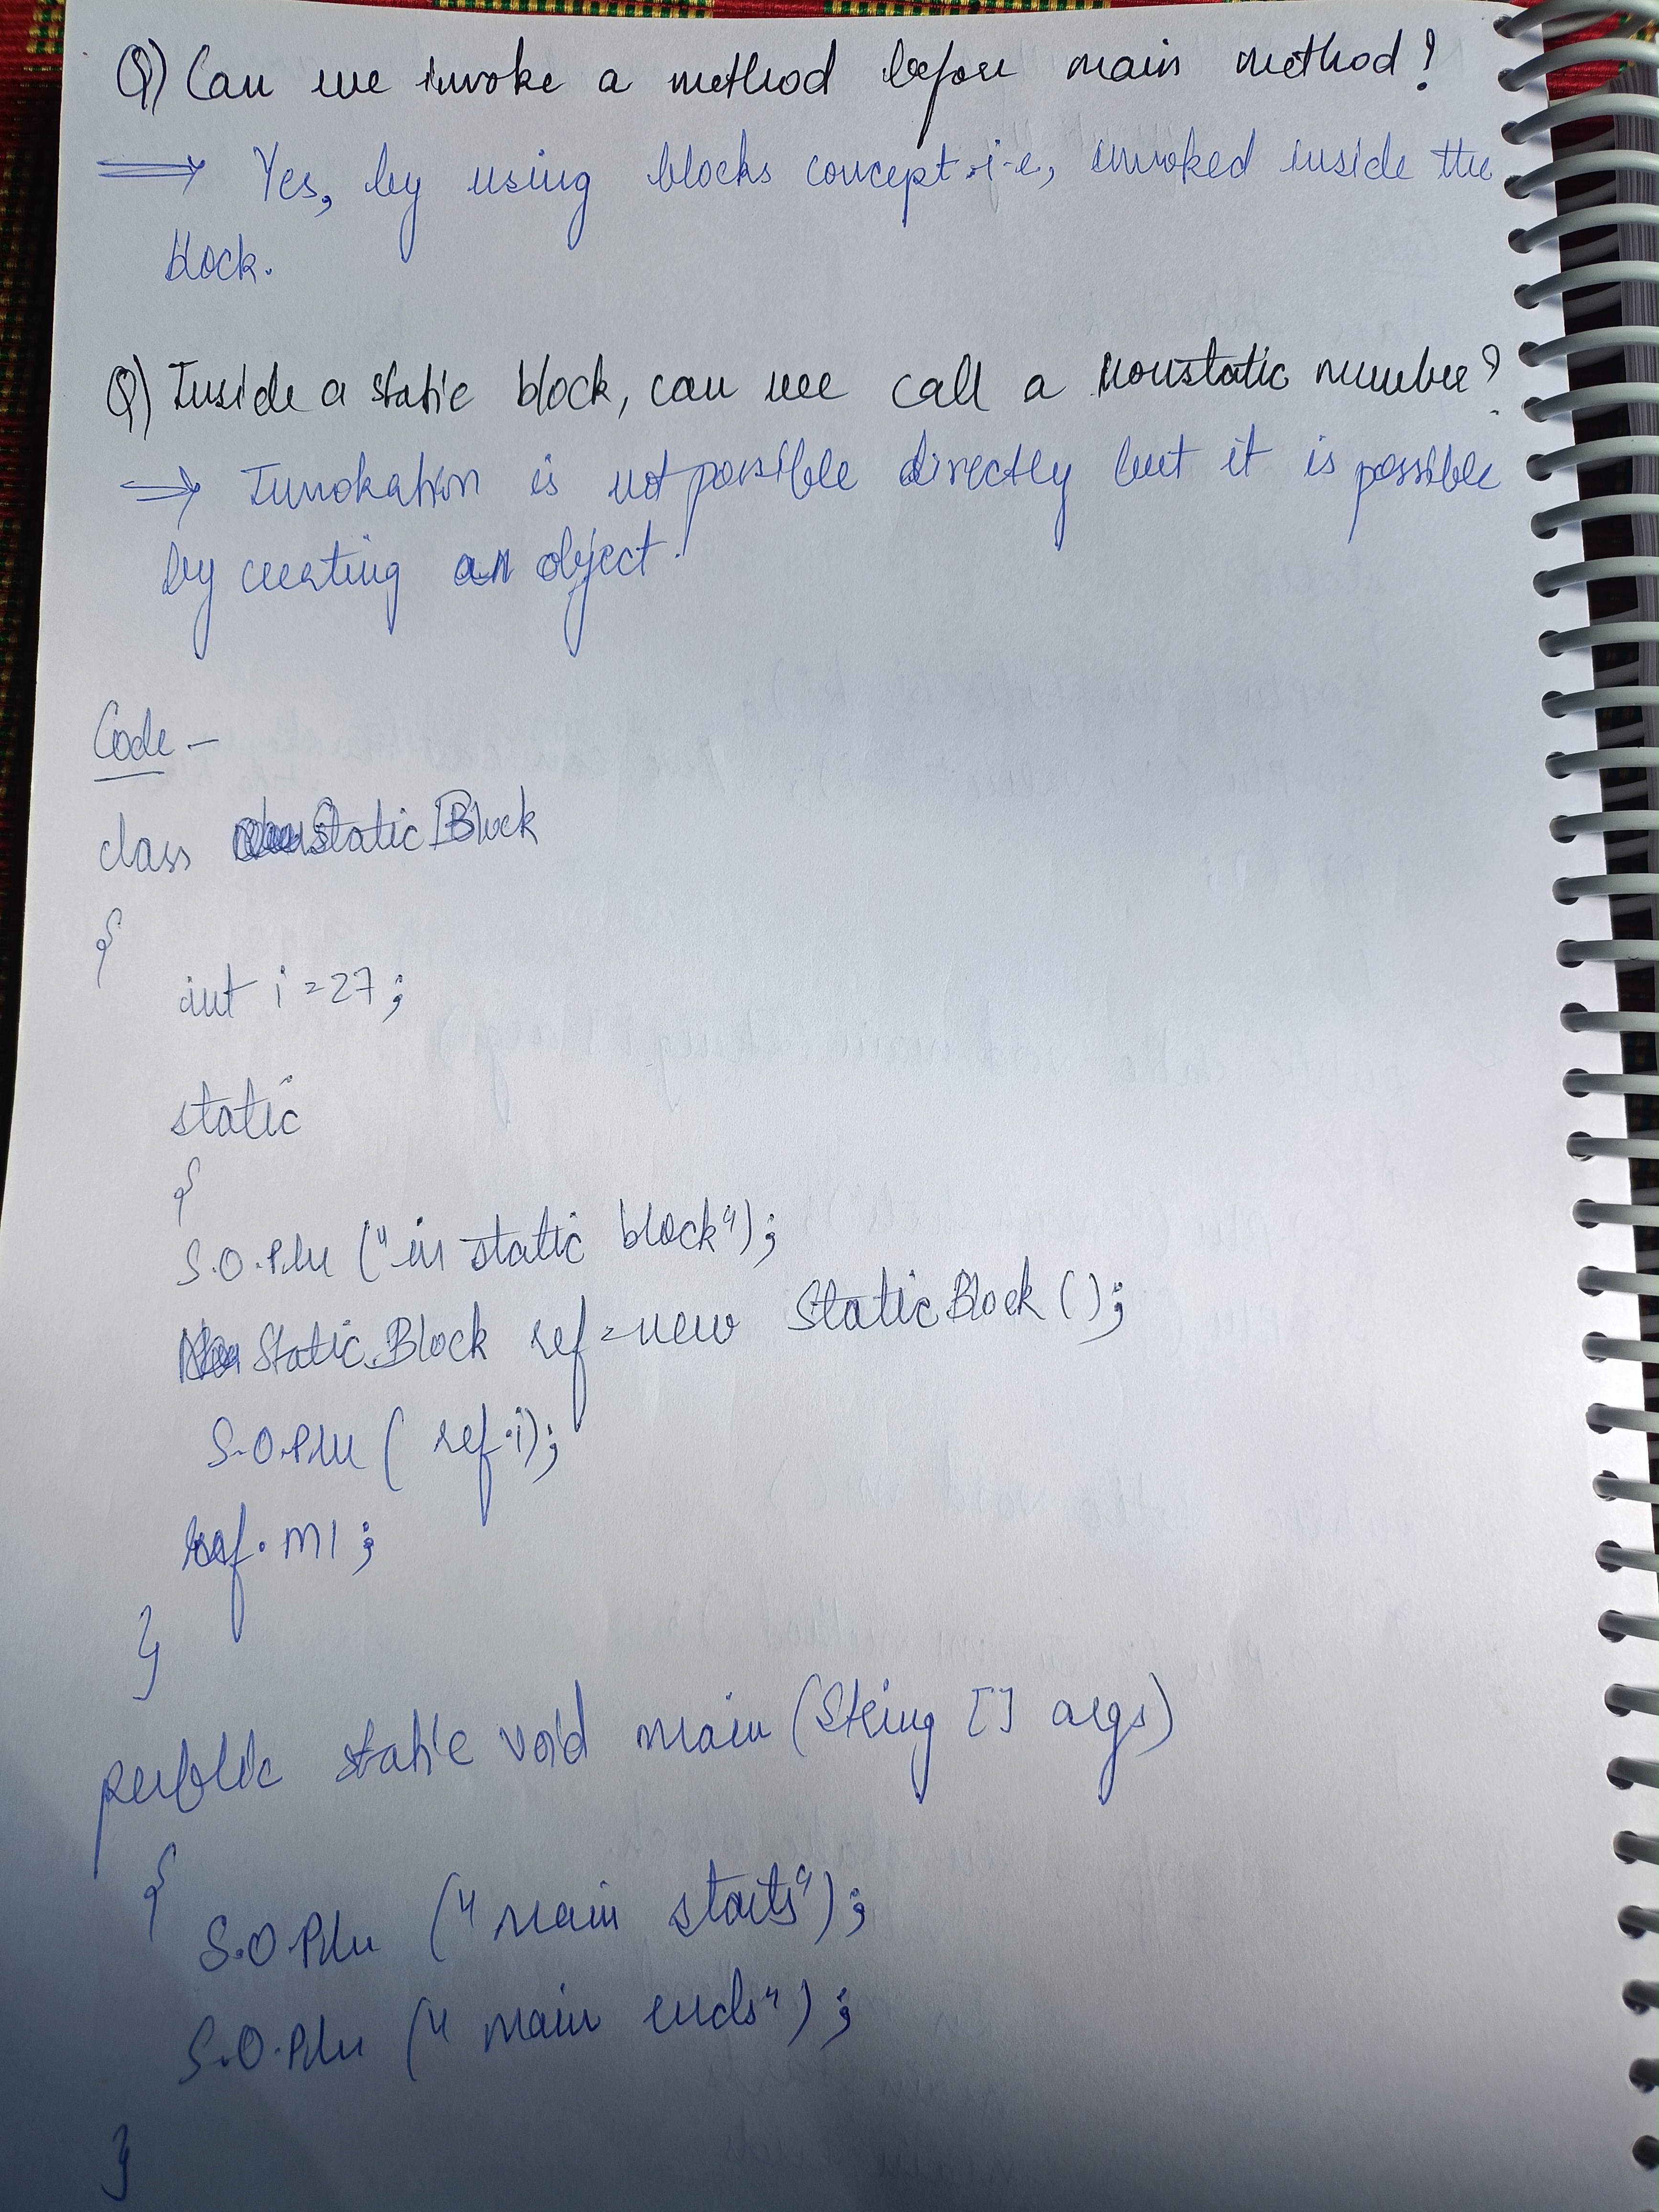 Q) Can we invoke a method before main method?
⇒ Yes, by using blocks concept i.e, invoked inside the
block.
Q) Inside a static block, can we call a nonstatic number?
⇒ Invokation is not possible directly but it is possible
by creating an object.
Code -
class StaticBlock
{
int i=27;
static
{
S.O.Pln ("in static block");
StaticBlock ref=new StaticBlock();
S.O.Pln ( ref.i);
ref.m1;
}
public static void main (String [] args)
{
S.O.Pln ("main starts");
S.O.Pln ("main ends");
}